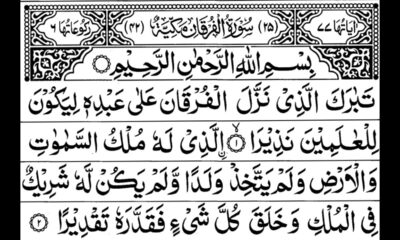 اٰیَاتُهَا ۷۷ (۲۵) سُوْرَةُ الْفُرْقَانِ مَكِّیَّةٌ (۴۲) رُكُوْعَاتُهَا ۶
بِسْمِ اللّٰهِ الرَّحْمٰنِ الرَّحِیْمِ
تَبٰرَكَ الَّذِیْ نَزَّلَ الْفُرْقَانَ عَلٰی عَبْدِهٖ لِیَكُوْنَ
لِلْعٰلَمِیْنَ نَذِیْرًا ۙ﴿۱﴾ اِ۟لَّذِیْ لَهٗ مُلْكُ السَّمٰوٰتِ
وَالْاَرْضِ وَلَمْ یَتَّخِذْ وَلَدًا وَّلَمْ یَكُنْ لَّهٗ شَرِیْكٌ
فِی الْمُلْكِ وَخَلَقَ كُلَّ شَیْءٍ فَقَدَّرَهٗ تَقْدِیْرًا ﴿۲﴾